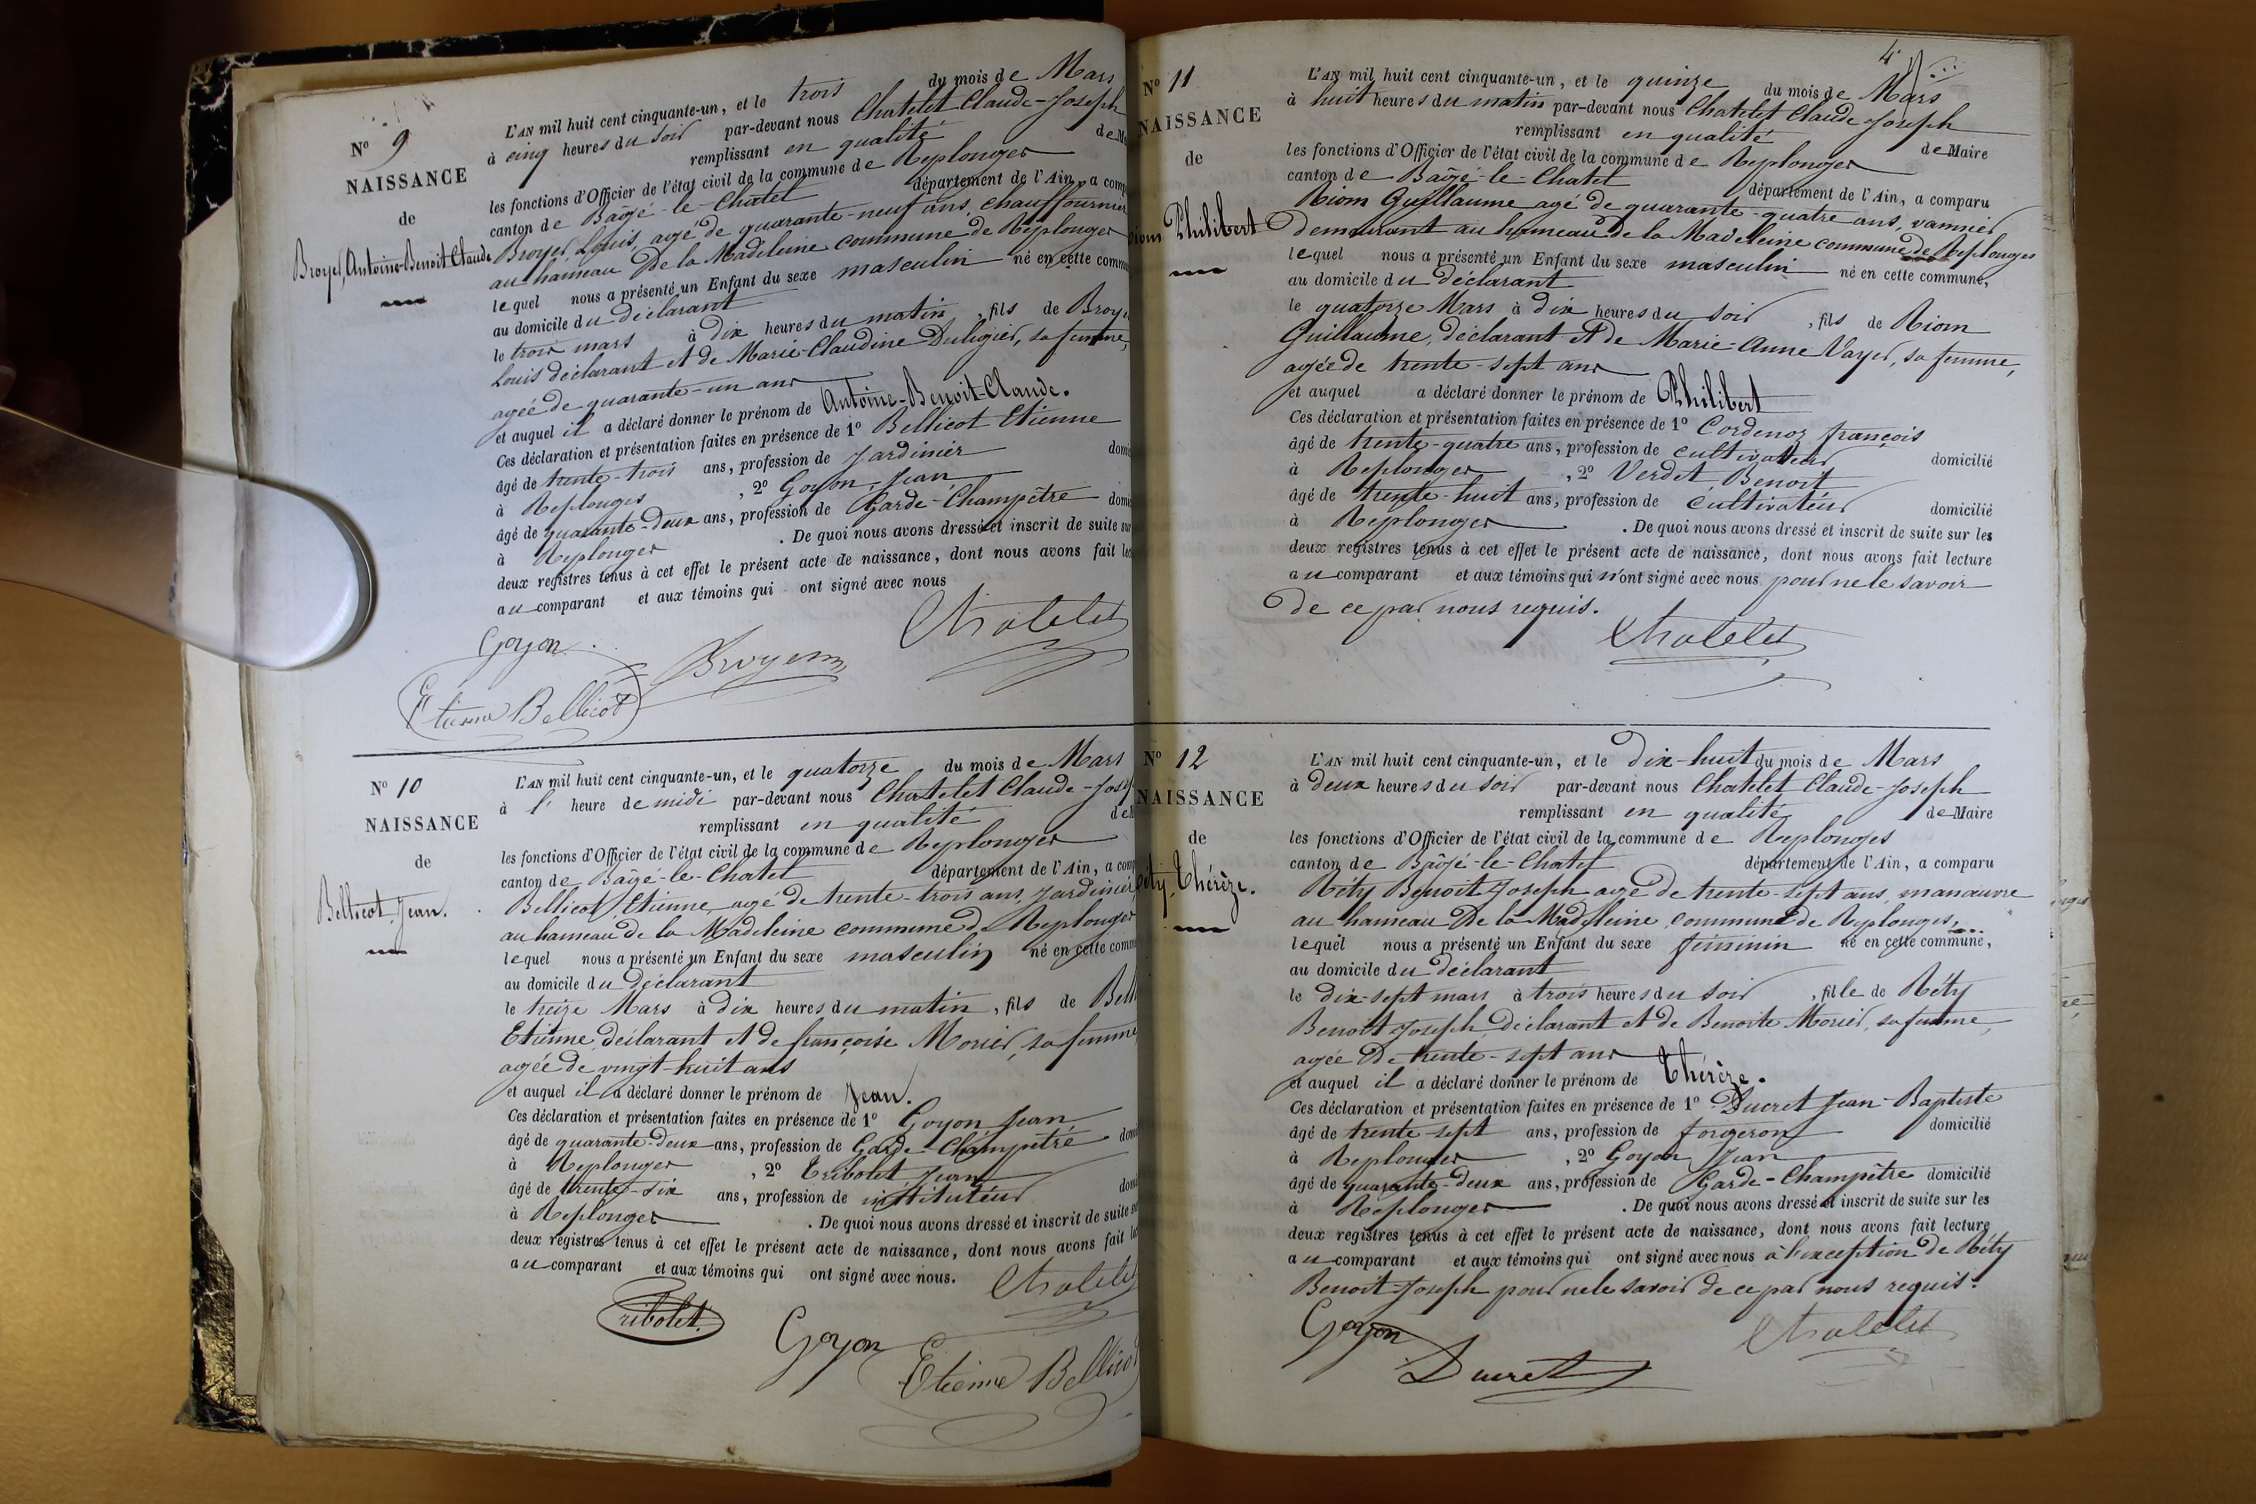 N° 9
NAISSANCE
de
Broyer, Antoine-Benoit-Claude
L'AN mil huit cent cinquante-un, et le trois du mois de Mars
à cinq heures du soir par-devant nous Chatelet Claude-Joseph
remplissant en qualité de M
les fonctions d'Officier de l'état civil de la commune de Replonges
canton de Bâgé-le-Chatel département de l'Ain, a comp
Broyer, Louis, agé de quarante-neuf ans, chauffournier
au hameau de la Madeleine commune de Replonges
lequel nous a présenté un Enfant du sexe masculin né en cette commu
au domicile du déclarant
le trois mars à dix heures du matin, fils de Broye
Louis déclarant et de Marie-Claudine Duligier, sa femme,
agée de quarante-un ans
et auquel il a déclaré donner le prénom de Antoine-Benoit-Claude.
Ces déclaration et présentation faites en présence de 1° Bellicot Etienne
âgé de trente-trois ans, profession de Jardinier domi
à Replonges, 2° Goyon, Jean
âgé de quarante-deux ans, profession de Garde-Champêtre domi
à Replonges. De quoi nous avons dressé et inscrit de suite sur
deux registres tenus à cet effet le présent acte de naissance, dont nous avons fait lec
au comparant et aux témoins qui ont signé avec nous
Goyon Broyer Chatelet
Etienne Bellicot
N° 10
NAISSANCE
de
Bellicot, Jean.
L'AN mil huit cent cinquante-un, et le quatorze du mois de Mars
à l' heure de midi par-devant nous Chatelet Claude-Jose
remplissant en qualité de
les fonctions d'Officier de l'état civil de la commune de Replonges
canton de Bâgé-le-Chatel département de l'Ain, a comp
Bellicot, Etienne, agé de trente-trois ans, Jardinier
au hameau de la Madeleine commune de Replonges
lequel nous a présenté un Enfant du sexe masculin né en cette comm
au domicile du déclarant
le treize Mars à dix heures du matin, fils de Bell
Etienne, déclarant et de françoise Morier, sa femme
agée de vingt-huit ans
et auquel il a déclaré donner le prénom de Jean.
Ces déclaration et présentation faites en présence de 1° Goyon, Jean
âgé de quarante-deux ans, profession de Garde-Champêtre domi
à Replonges, 2° Tribolet Jean
âgé de trente-six ans, profession de instituteur domi
à Replonges. De quoi nous avons dressé et inscrit de suite su
deux registres tenus à cet effet le présent acte de naissance, dont nous avons fait le
au comparant et aux témoins qui ont signé avec nous.
Tribolet. Goyon Chatelet
Etienne Bellicot
4
N° 11
NAISSANCE
de
Riom Philibert
L'AN mil huit cent cinquante-un, et le quinze du mois de Mars
à huit heures du matin par-devant nous Chatelet Claude-Joseph
remplissant en qualité de Maire
les fonctions d'Officier de l'état civil de la commune de Replonges
canton de Bâgé-le-Chatel département de l'Ain, a comparu
Riom Guillaume agé de quarante-quatre ans, vannier
demeurant au hameau de la Madeleine commune de Replonges
lequel nous a présenté un Enfant du sexe masculin né en cette commune,
au domicile du déclarant
le quatorze Mars à dix heures du soir, fils de Riom
Guillaume, déclarant et de Marie-Anne Vayer, sa femme,
agée de trente-sept ans
et auquel a déclaré donner le prénom de Philibert
Ces déclaration et présentation faites en présence de 1° Cordenoz françois
âgé de trente-quatre ans, profession de cultivateur domicilié
à Replonges, 2° Verdet, Benoit
âgé de trente-huit ans, profession de cultivateur domicilié
à Replonges. De quoi nous avons dressé et inscrit de suite sur les
deux registres tenus à cet effet le présent acte de naissance, dont nous avons fait lecture
au comparant et aux témoins qui n'ont signé avec nous pour ne le savoir
de ce par nous requis.
Chatelet
N° 12
NAISSANCE
de
Réty, Thérèze.
L'AN mil huit cent cinquante-un, et le dix-huit du mois de Mars
à deux heures du soir par-devant nous Chatelet Claude-Joseph
remplissant en qualité de Maire
les fonctions d'Officier de l'état civil de la commune de Replonges
canton de Bâgé-le-Chatel département de l'Ain, a comparu
Réty Benoit-Joseph agé de trente-sept ans, manœuvre
au hameau de la Madeleine, commune de Replonges,
lequel nous a présenté un Enfant du sexe féminin né en cette commune,
au domicile du déclarant
le dix-sept mars à trois heures du soir, fille de Réty
Benoit-Joseph, déclarant et de Benoite Morier, sa femme,
agée de trente-sept ans
et auquel il a déclaré donner le prénom de Thérèze.
Ces déclaration et présentation faites en présence de 1° Ducret Jean-Baptiste
âgé de trente-sept ans, profession de forgeron domicilié
à Replonges, 2° Goyon Jean
âgé de quarante-deux ans, profession de Garde-Champêtre domicilié
à Replonges. De quoi nous avons dressé et inscrit de suite sur les
deux registres tenus à cet effet le présent acte de naissance, dont nous avons fait lecture
au comparant et aux témoins qui ont signé avec nous à l'exception de Réty
Benoit-Joseph pour ne le savoir de ce par nous requis.
Goyon Chatelet
Ducret